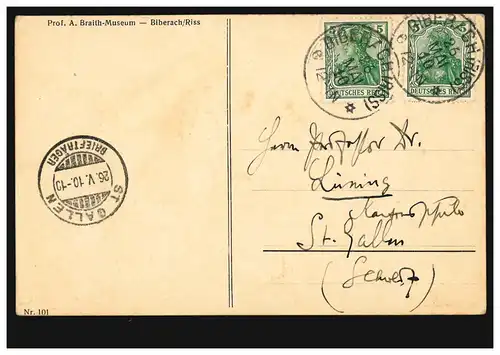 Prof. A. Braith-Museum — Biberach/Riss
5
DEUTSCHES REICH
DEUTSCHES REICH
BIBERACH (RISS)
25
MAI
10
BIBERACH (RISS)
25
MAI
10
ST. GALLEN
BRIEFTRÄGER
26.V.10.-10
Herrn Professor Dr.
Lüning
St. Gallen
(Schweiz)
Nr. 101